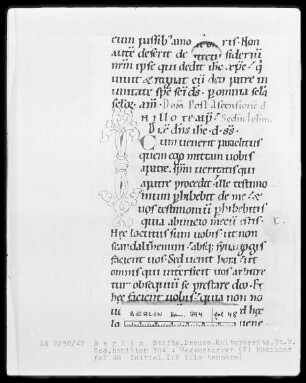 eum passibus amoris. Non
autem deserit de siderium
nrm ipse qui dedit ihc xpc. q
uiuit & regnat cu deo patre in
unitate sps sci ds. p omnia scla
sclor. am. Dom. Post Ascensione d
IN ILLO TEMP. Scdm Iohm.
Dix dns ihc d. ss.
Cum uenerit paraclitus
quem ego mittam uobis
a patre. spm ueritatis qui
a patre procedit. ille testimo
nium perhibebit de me. &
uos testimoniu perhibebitis
quia ab inicio mecu estis.
Hec locutus sum uobis ut non
scandalizemini. absq; synagogis
facient uos. Sed uenit hora. ut
omnis qui interficit uos arbitre
tur obsequiu se prestare deo. Et
hec facient uobis. quia non no
BERLIN Ham. 394 fol 48
LA 2230/42 Berlin Stiftg.Preuss.Kulturbesitz, St.B.
Cod.Hamilton 394 : Regensburger (?) Homiliar
fol 48 Initial I(N illo tempore)